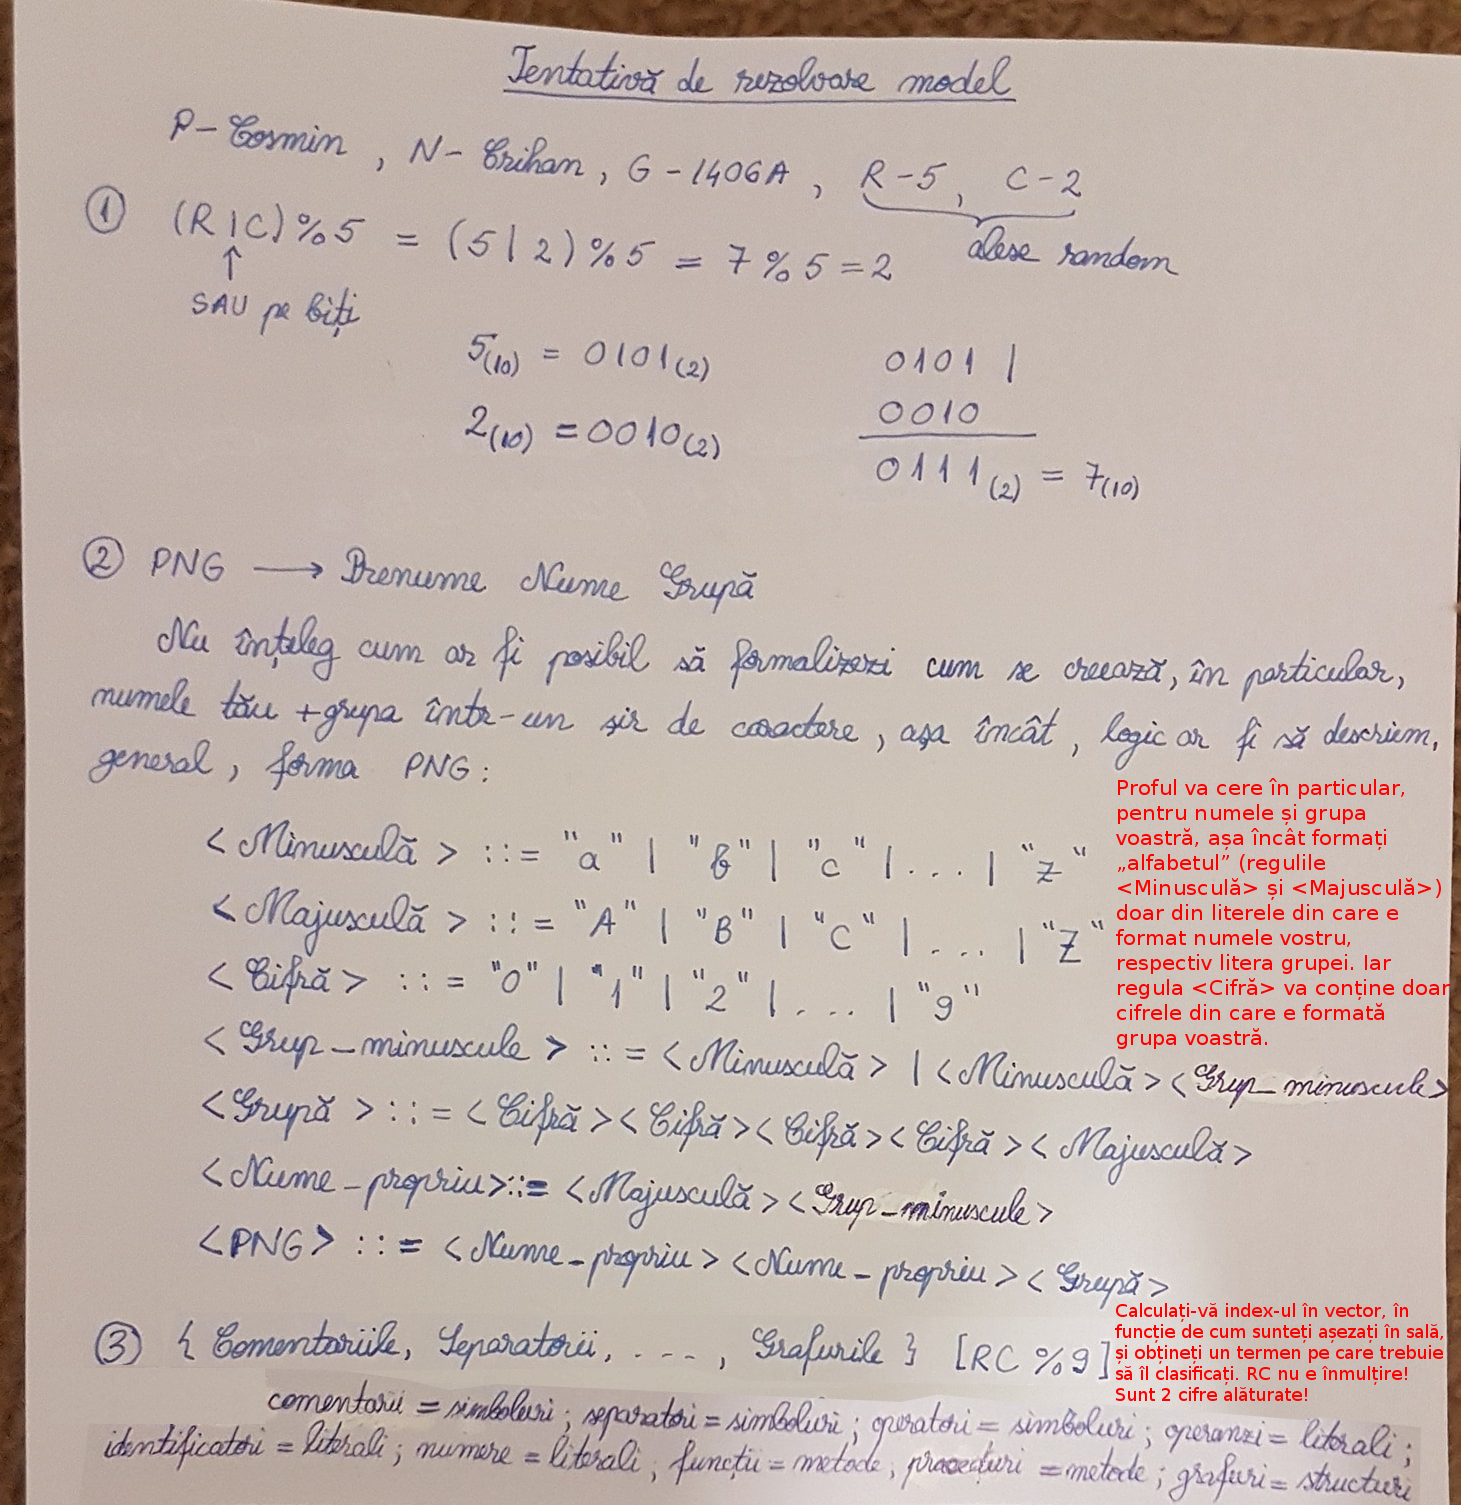 Tentativă de rezolvare model
P - Cosmin , N - Crihan , G - 1406A , R - 5 , C - 2
alese random
① (R | C) % 5 = (5 | 2) % 5 = 7 % 5 = 2
↑
SAU pe biți
5(10) = 0101(2)
2(10) = 0010(2)
0101 |
0010
0111(2) = 7(10)
② PNG ⟶ Prenume Nume Grupă
Nu înțeleg cum ar fi posibil să formalizezi cum se creează, în particular,
numele tău + grupa într-un șir de caractere, așa încât, logic ar fi să descriem,
general, forma PNG:
<Minusculă> ::= "a" | "b" | "c" | ... | "z"
<Majusculă> ::= "A" | "B" | "C" | ... | "Z"
<Cifră> ::= "0" | "1" | "2" | ... | "9"
<Grup_minuscule> ::= <Minusculă> | <Minusculă><Grup_minuscule>
<Grupă> ::= <Cifră><Cifră><Cifră><Cifră><Majusculă>
<Nume_propriu> ::= <Majusculă><Grup_minuscule>
<PNG> ::= <Nume_propriu><Nume_propriu><Grupă>
Proful va cere în particular,
pentru numele și grupa
voastră, așa încât formați
„alfabetul” (regulile
<Minusculă> și <Majusculă>)
doar din literele din care e
format numele vostru,
respectiv litera grupei. Iar
regula <Cifră> va conține doar
cifrele din care e formată
grupa voastră.
③ { Comentariile, Separatorii, ..., Grafurile } [RC % 9]
Calculați-vă index-ul în vector, în
funcție de cum sunteți așezați în sală,
și obțineți un termen pe care trebuie
să îl clasificați. RC nu e înmulțire!
Sunt 2 cifre alăturate!
comentarii = simboluri; separatori = simboluri; operatori = simboluri; operanzi = literali;
identificatori = literali; numere = literali; funcții = metode; proceduri = metode; grafuri = structuri